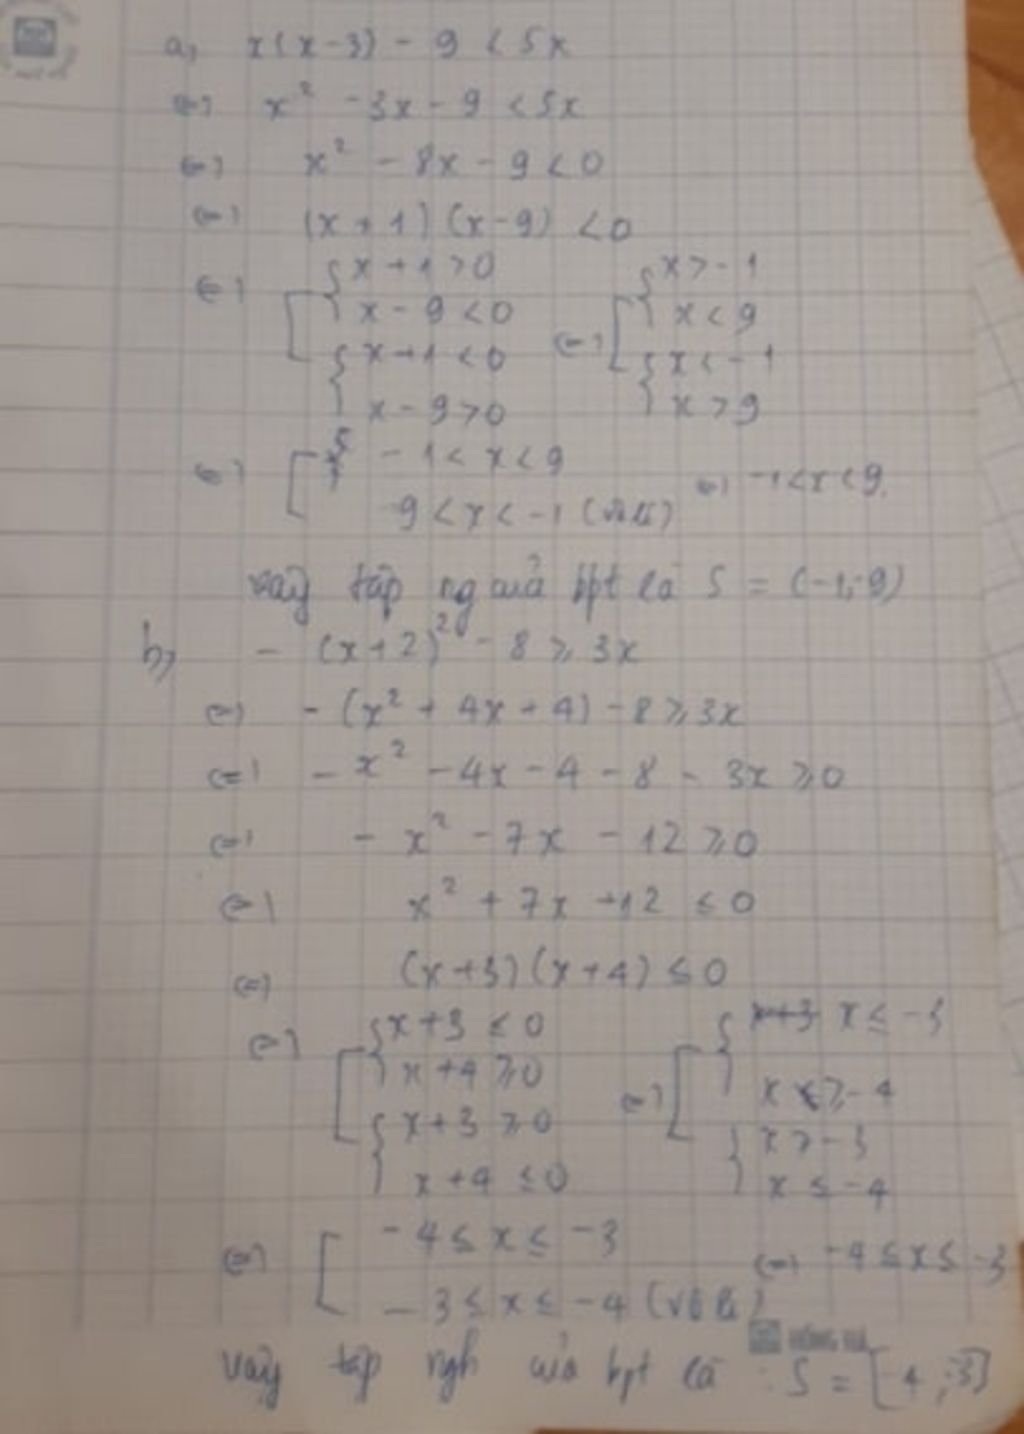 a, x(x-3) - 9 < 5x
<=> x² - 3x - 9 < 5x
<=> x² - 8x - 9 < 0
<=> (x + 1) (x - 9) < 0
<=> [ { x + 1 > 0
x - 9 < 0
{ x + 1 < 0
x - 9 > 0
<=> [ { x > -1
x < 9
{ x < -1
x > 9
<=> [ -1 < x < 9
9 < x < -1 (vô lí)
<=> -1 < x < 9.
vậy tập ng của bpt là S = (-1; 9)
b, - (x+2)² - 8 ≥ 3x
<=> - (x² + 4x + 4) - 8 ≥ 3x
<=> - x² - 4x - 4 - 8 - 3x ≥ 0
<=> - x² - 7x - 12 ≥ 0
<=> x² + 7x + 12 ≤ 0
<=> (x+3) (x+4) ≤ 0
<=> [ { x+3 ≤ 0
x + 4 ≥ 0
{ x + 3 ≥ 0
x + 4 ≤ 0
<=> [ { x ≤ -3
x ≥ -4
{ x ≥ -3
x ≤ -4
<=> [ -4 ≤ x ≤ -3
-3 ≤ x ≤ -4 (vô lí)
<=> -4 ≤ x ≤ -3
HỒNG HÀ
vậy tập ngh của bpt là : S = [-4; -3]